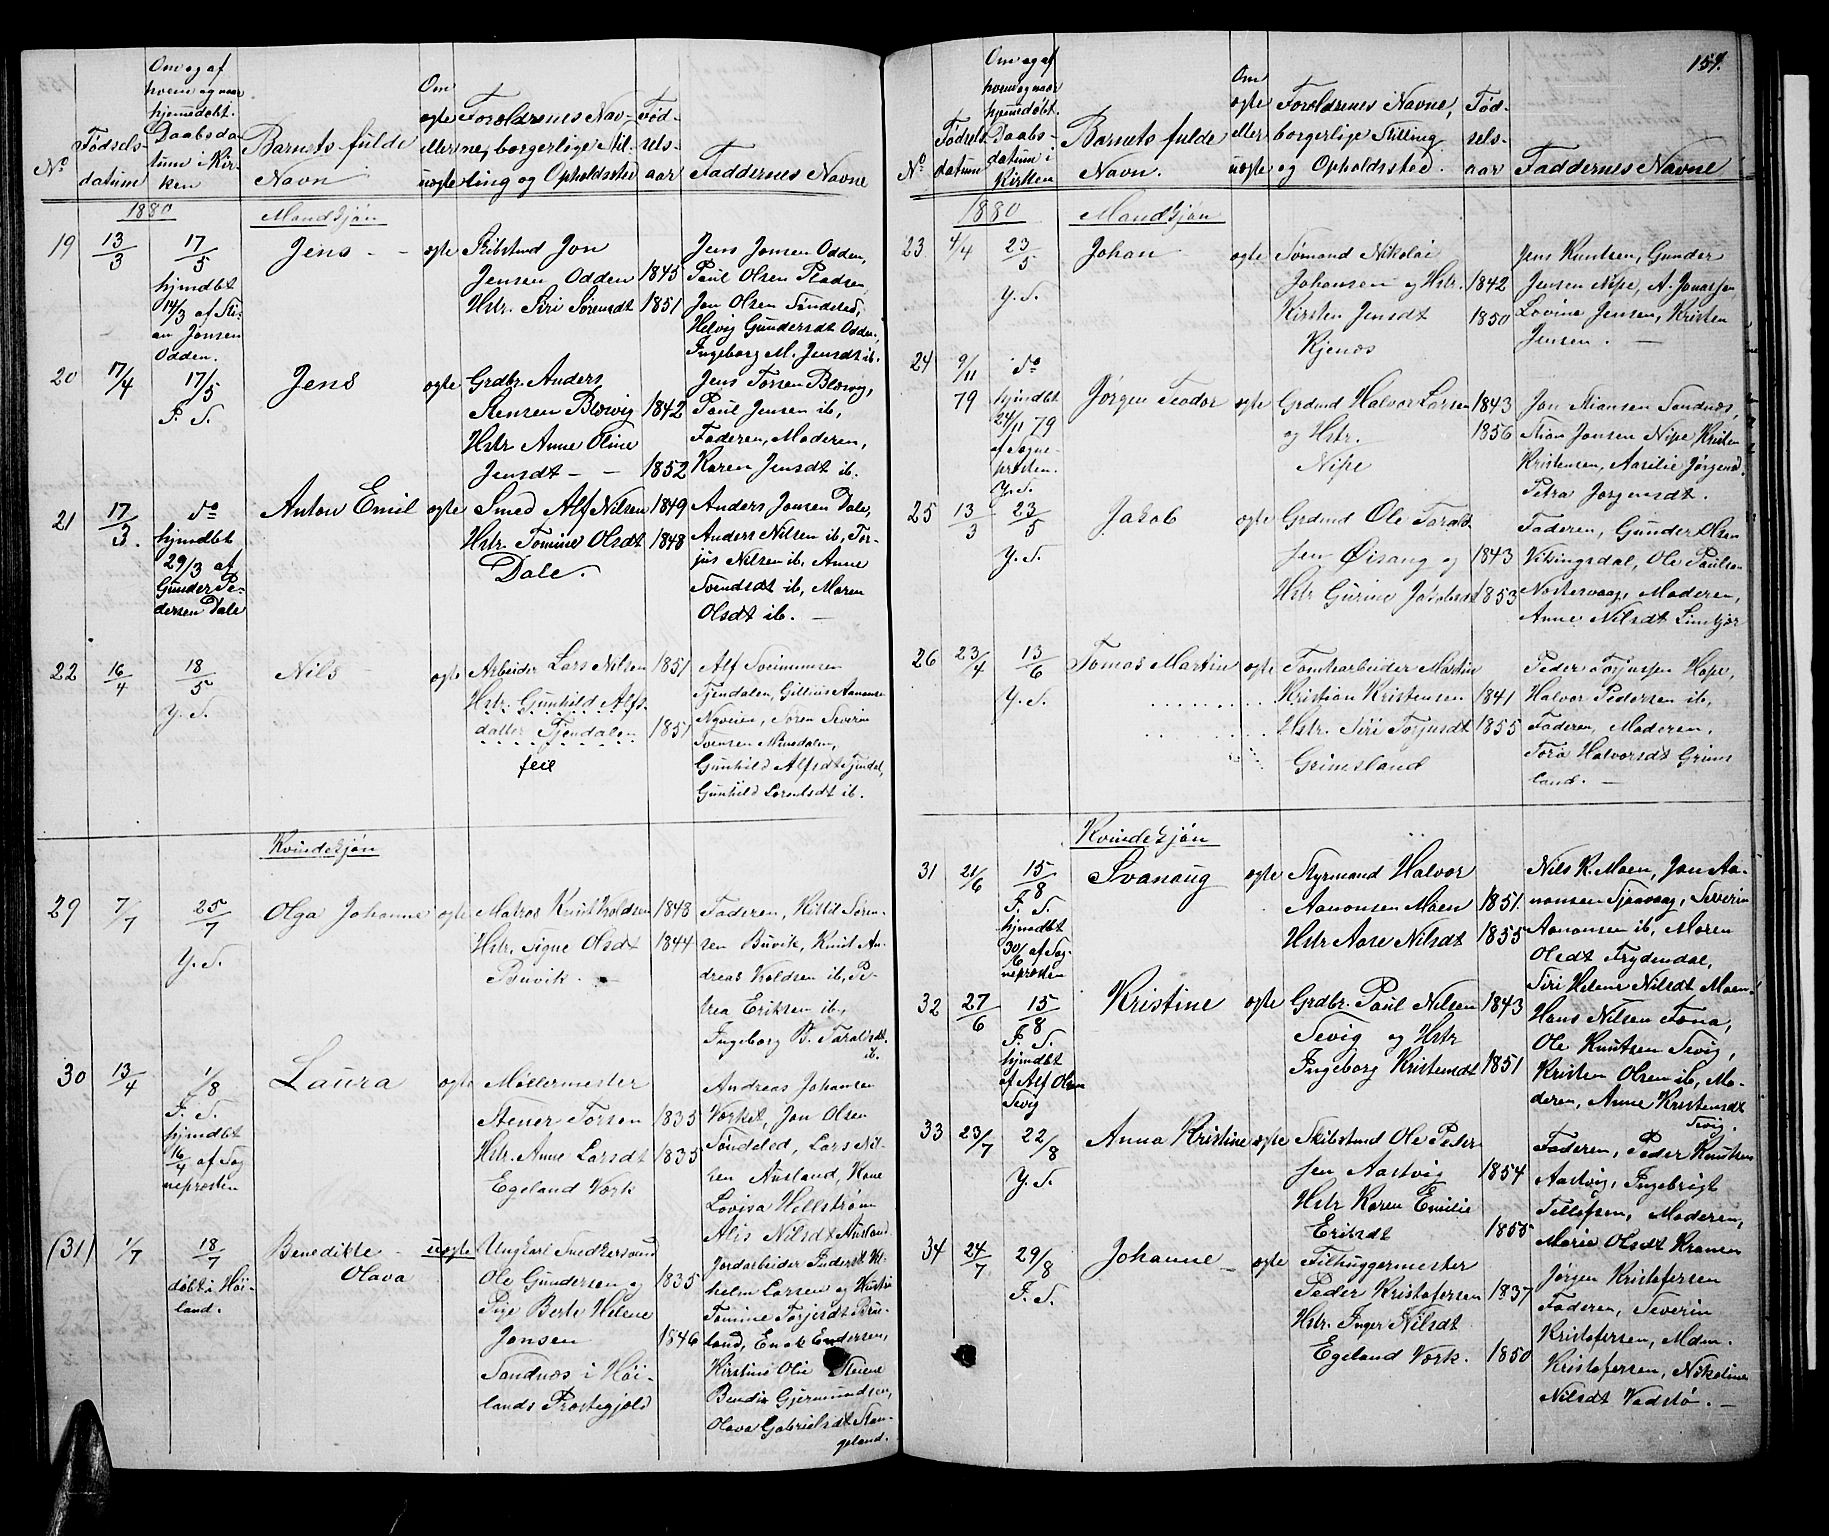 Nº
Fødsels-
datum
Om og af
hvem og naar
hjemmedøbt.
Daabsda-
tum i Kir-
ken
Barnets fulde
Navn
Om
ægte
eller
uægte
Forældrenes Nav-
ne, borgerlige Stil-
ling og Opholdssted
Fød-
sels-
aar
Faddernes Navne
1880
Mandkjøn
19
13/3
17/5
hjmdbt
14/3 af Sti-
an Jensen
Odden.
Jens
ægte
Skibstmd Jon
Jensen Odden 1845
Hstr. Siri Sørensdt 1851
Jens Jonsen Odden,
Paul Olsen Pladsen,
Jon Olsen Søndeled,
Helvig Gundersdt Odden,
Ingeborg M. Jensdt ib.
20
17/4
17/5
F. S.
Jens
ægte
Grdbr. Anders
Stensen Blævig 1842
Hstr. Anne Oline
Jensdt - - 1852
Jens Torsen Blævig,
Paul Jensen ib,
Faderen, Moderen,
Karen Jensdt ib.
21
17/3.
do
hjmdbt
29/3 af
Gunder Pe-
dersen Dale
Anton Emil
ægte
Smed Alf Nilsen 1849
Hstr. Tomine Olsdt 1848
Dale.
Anders Jonsen Dale,
Anders Nilsen ib, Tor-
jus Nilsen ib, Anne
Svendsdt ib, Maren
Olsdt ib. —
22
16/4
18/5
Y. S.
Nils
ægte
Arbeider Lars Nilsen 1851
Hstr. Gunhild Alfs-
datter Tjendalen 1851
feil
Alf Sveinunsen
Tjendalen, Gillius Aanonsen
Nyveien, Søren Severin
Svensen Minedalen,
Gunhild Alfsdt Tjendal,
Gunhild Lorentsdt ib.
Kvindekjøn
29
7/7
25/7
Y. S.
Olga Johanne
ægte
Matros Knut Koldsen 1843
Hstr. Signe Olsdt 1844
Buvik.
Faderen, Kittil Søren-
sen Buvik, Knut An-
dreas Koldsen ib, Pe-
trea Eriksen ib,
Ingeborg B. Taraldsdt
ib.
30
13/4
1/8
F. S.
hjmdbt
16/4 af Sog-
neprosten
Laura
ægte
Møllermester
Stener Torsen 1835
Hstr. Anne Larsdt 1835
Egeland Værk
Andreas Johansen
Værket, Jon Olsen
Søndeled, Lars Nil-
sen Ausland, Kone
Lovisa Hellstrøm
Alis Nilsdt Ausland
(31)
1/7
18/7
døbt i Høi-
land.
Benedikte
Olava
uægte
Ungkarl Snedkersvend
Ole Gundersen og 1835
Pige Berte Helene
Jonsen 1846
Sandnæs i Høi-
lands Præstegjeld
Jordarbeider Inderst Vil-
helm Larsen og Hustru
Tomine Torjesdt Bru-
land, Enok Endersen,
Kirstine Olie Steiene
Bendix Gjermundsen,
Olava Gabrielsdt Stan-
geland.
154.
Nº
Fødsels-
datum
Om og af
hvem og naar
hjemmedøbt.
Daabs-
datum i
Kirken
Barnets fulde
Navn.
Om
ægte
eller
uægte
Forældrenes Navne,
borgerlige Stilling
og Opholdssted.
Fød-
sels-
aar
Faddernes Navne
1880
Mandkjøn
23
4/4
23/5
Y. S.
Johan
ægte
Sømand Nikolai
Johansen og Hstr. 1842
Kirsten Jensdt 1850
Kjenæs
Jens Knutsen, Gunder
Jensen Nipe, A. Jonassen,
Lovine Jensen, Kristen
Jensen. —
24
9/11
79
do
hjmdbt
24/11 79
af Sogne-
prosten.
Y. S.
Jørgen Teodor
ægte
Grdmd Halvor Larsen 1843
og Hstr. 1856
Nipe
Jon Stiansen Sandnæs,
Stian Jonsen Nipe, Kristen
Kristensen, Aasilie Jørgensd.
Petra Jørgensdt.
25
13/3
23/5
Y. S.
Jakob
ægte
Grdmd Ole Torald-
sen Øisang og 1843
Hstr Gurine Jakobsdt 1853
Faderen, Gunder Olsen
Vikingsdal, Ole Paulsen
Nostervaag, Moderen,
Anne Nilsdt Limkjær
26
23/4
13/6
Y. S.
Tomas Martin
ægte
Tomtearbeider Martin
Kristian Kristensen 1841
Hstr. Siri Torjusdt 1855
Grimsland
Peder Torjussen Hope,
Halvor Pedersen ib,
Faderen, Moderen,
Tora Halvorsdt Grims-
land. —
Kvindekjøn
31
21/6
15/8
F. S.
hjmdbt
30/6 af Sog-
neprosten
Svanaug
ægte
Styrmand Halvor
Aanonsen Moen 1851.
Hstr Aase Nilsdt 1855
Nils K. Moen, Jon Aa-
nonsen Sjaavaag, Severin
Aanonsen ib, Maren
Olsdt Frydendal,
Siri Helene Nilsdt Moen.
32
27/6
15/8
F. S.
hjmdbt
af Alf Olsen
Sevig
Kristine
ægte
Grdbr. Paul Nilsen 1843
Sevig og Hstr
Ingeborg Kristensdt 1851
Hans Nilsen Fona,
Ole Knutsen Sevig,
Kristen Olsen ib, Mo-
deren, Anne Kristensdt
Sevig.
33
23/7
22/8
Y. S.
Anna Kristine
ægte
Skibstmd Ole Peder-
sen Aastvig 1854
Hstr Karen Emilie
Eriksdt 1855
Faderen, Peder Knutsen
Aastvig, Ingebrigt
Tellefsen, Moderen,
Maria Olsdt Kranen
34
24/7
29/8
F. S.
Johanne
ægte
Tilhuggermester
Peder Kristofersen 1837
Hstr. Inger Nilsdt
Egeland Værk. 1850
Jørgen Kristofersen
Faderen, Severin
Kristofersen, Mdm.
Kristofersen, Nikoline
Nilsdt Vadstø. —